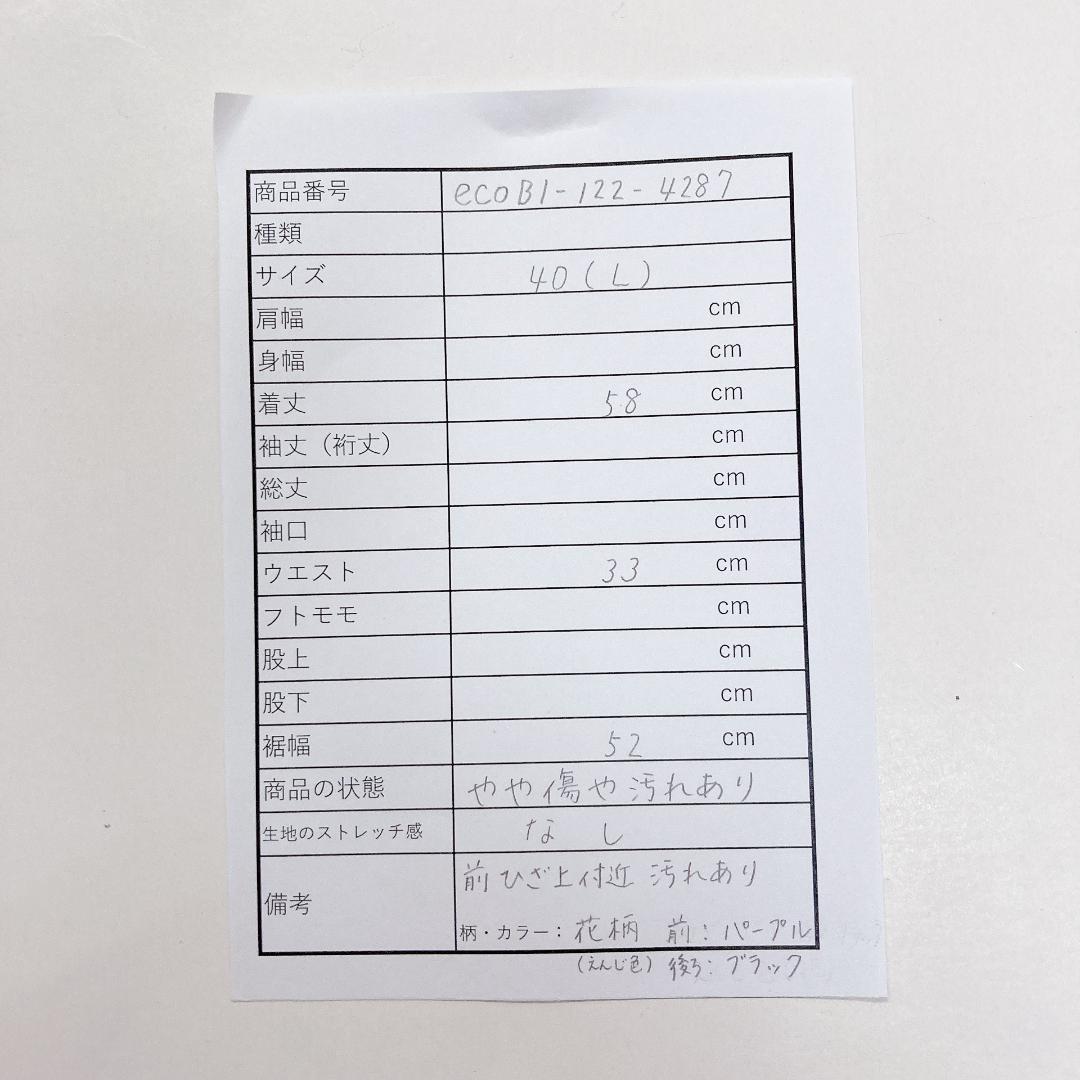 商品番号 ecoB1-122-4287
種類
サイズ 40(L)
肩幅 cm
身幅 cm
着丈 58 cm
袖丈（裄丈） cm
総丈 cm
袖口 cm
ウエスト 33 cm
フトモモ cm
股上 cm
股下 cm
裾幅 52 cm
商品の状態 やや傷や汚れあり
生地のストレッチ感 なし
備考 前ひざ上付近 汚れあり
柄・カラー： 花柄 前：パープル
(えんじ色) 後ろ：ブラック